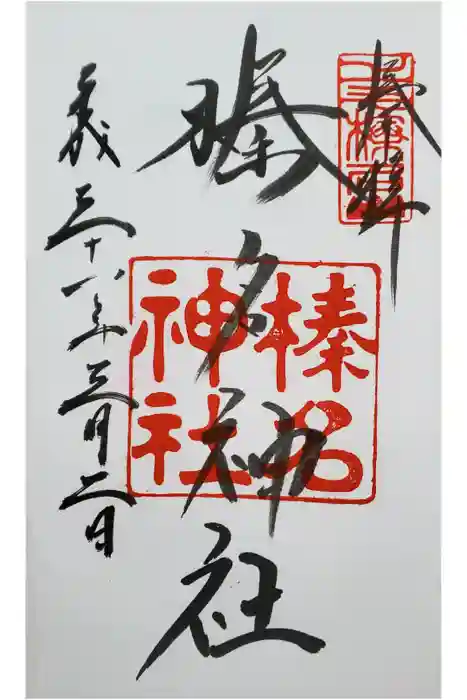 奉拝
榛名神社
榛名
神社
平成三十一年三月二日